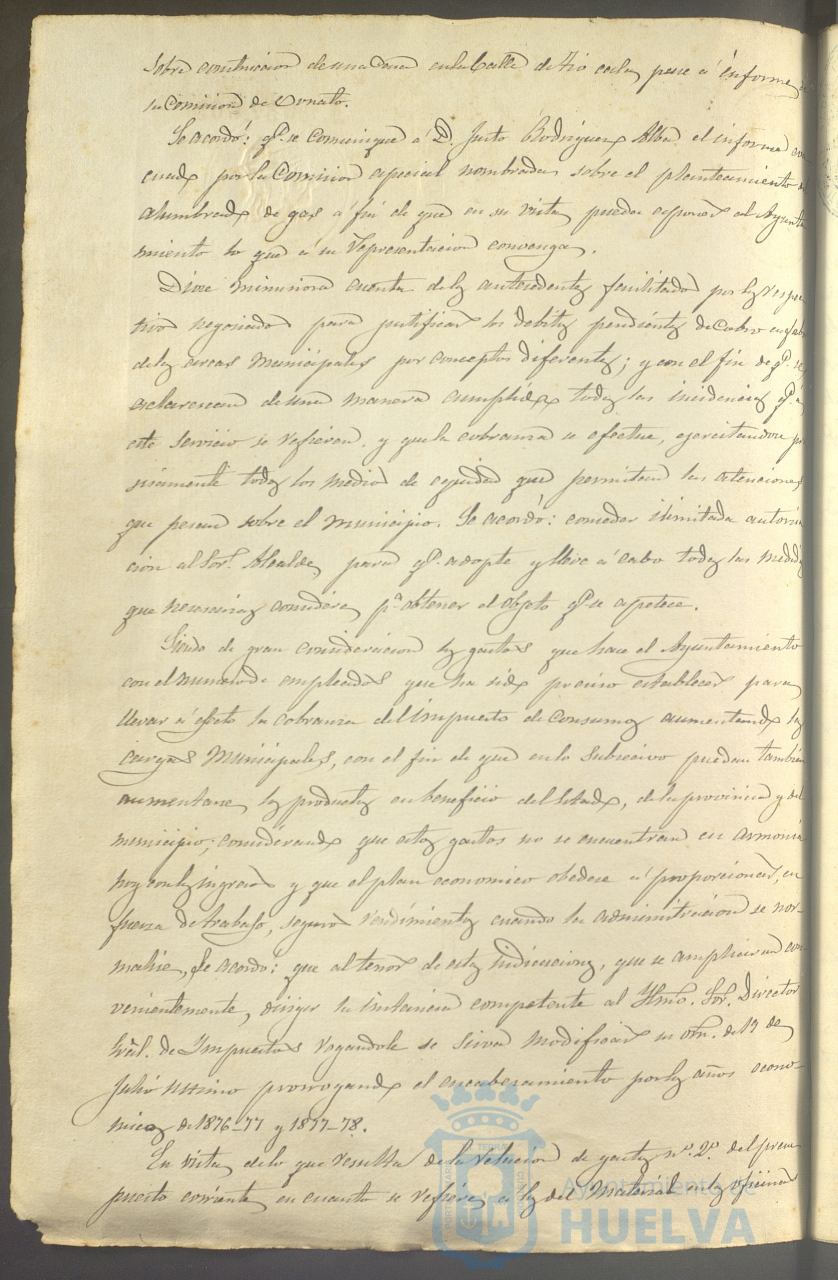 sobre contrucion de una Casa en la Calle de Tio pase á informe de
la Comision de Ornato.
Se acordó: qe. se comunique á D. Justo Rodriguez Alba el informe
cuado por la Comision especial nombrada sobre el planteamiento de
alumbrado de gas á fin de que en su vista pueda esponer al Ayunta
miento lo que á su representacion convenga.
Dióse minuciosa cuenta de los antecedentes facilitados por los respec
tivos negociados para justificar los debitos pendientes de Cobro en
de las arcas Municipales por conceptos diferentes; y con el fin de qe. se
esclarescan de una manera cumplida todas las incidencias qe. á
este servicio se refieran, y que la cobranza se efectue, ejercitandose
todos los medios de equidad que permitan las atenciones
que pesan sobre el municipio. Se acordó: conceder ilimitada autoriza
cion al Sor. Alcalde, para qe. adopte y lleve á cabo todas las medidas
que necesarias considere pa. obtener el objeto qe. se apetece.
Siendo de gran consideracion los gastos que hace el Ayuntamiento
con el numero de empleados que ha sido preciso establecer para
llevar á efecto la cobranza del impuesto de Consumos aumentando las
cargas Municipales, con el fin de que en lo subcesivo puedan tambien
aumentarse los productos en beneficio del Estado, de la provincia y del
municipio; considerando que estos gastos no se encuentran en armonia
hoy con los ingresos y que el plan economico obedece á proporcionar, en
fuerza de trabajo, seguros rendimientos cuando la administracion se nor-
malice, Se acordó: que al tenor de estas indicaciones, que se ampliaran con
venientemente, dirigir la instancia competente al Yltmo. Sor. Director
Gral. de Impuestos rogandole se sirva modificar su orn. de 17 de
Julio ultimo prorrogando el encabezamiento por los años econo-
micos de 1876-77 y 1877-78.
En vista de lo que resulta de la relacion de gastos nº. 2º. del presu
puesto corriente en cuanto se refiere a los del Material de las oficinas
Ayuntamiento de
HUELVA